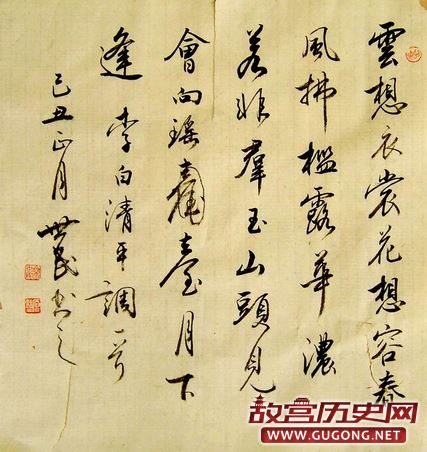 雲想衣裳花想容春
風拂檻露華濃
若非羣玉山頭見
會向瑤臺月下
逢 李白清平調一首
己丑正月 世民书之
故宫历史网
WWW.GUGONG.NET